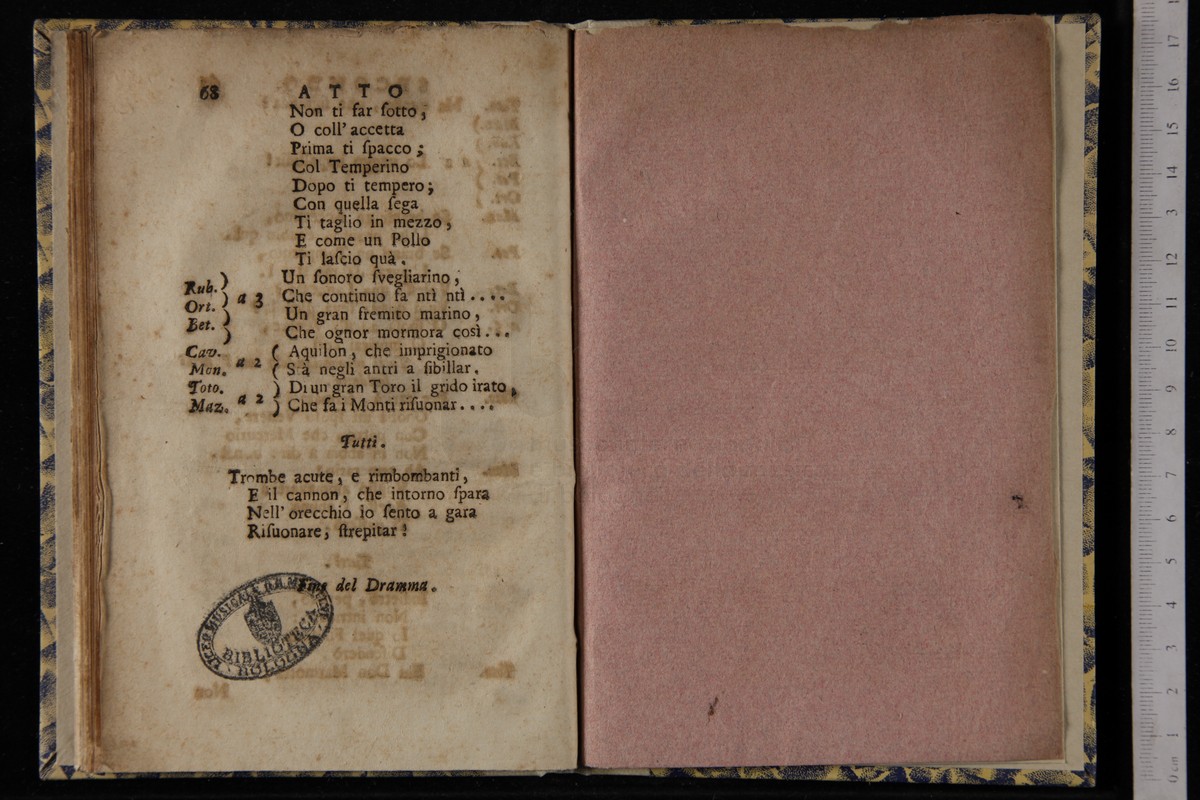 68 ATTO
Non ti far ſotto,
O coll' accetta
Prima ti ſpacco;
Col Temperino
Dopo ti tempero;
Con quella ſega
Ti taglio in mezzo,
E come un Pollo
Ti laſcio quà.
Rub. ) Un ſonoro ſvegliarino,
Ort. ) a 3 Che continuo fa ntì ntì....
Bet. ) Un gran fremito marino,
) Che ognor mormora così...
Cav. ( Aquilon, che imprigionato
Mon. a 2 ( Sà negli antri a ſibillar.
Toto. ) Di un gran Toro il grido irato,
Maz. a 2 ) Che fa i Monti riſuonar....
Tutti.
Trombe acute, e rimbombanti,
E il cannon, che intorno ſpara
Nell' orecchio io ſento a gara
Riſuonare, ſtrepitar!
Fine del Dramma.
LICEO MUSICALE
BIBLIOTECA
BOLOGNA
0 cm 1 2 3 4 5 6 7 8 9 10 11 12 13 14 15 16 17